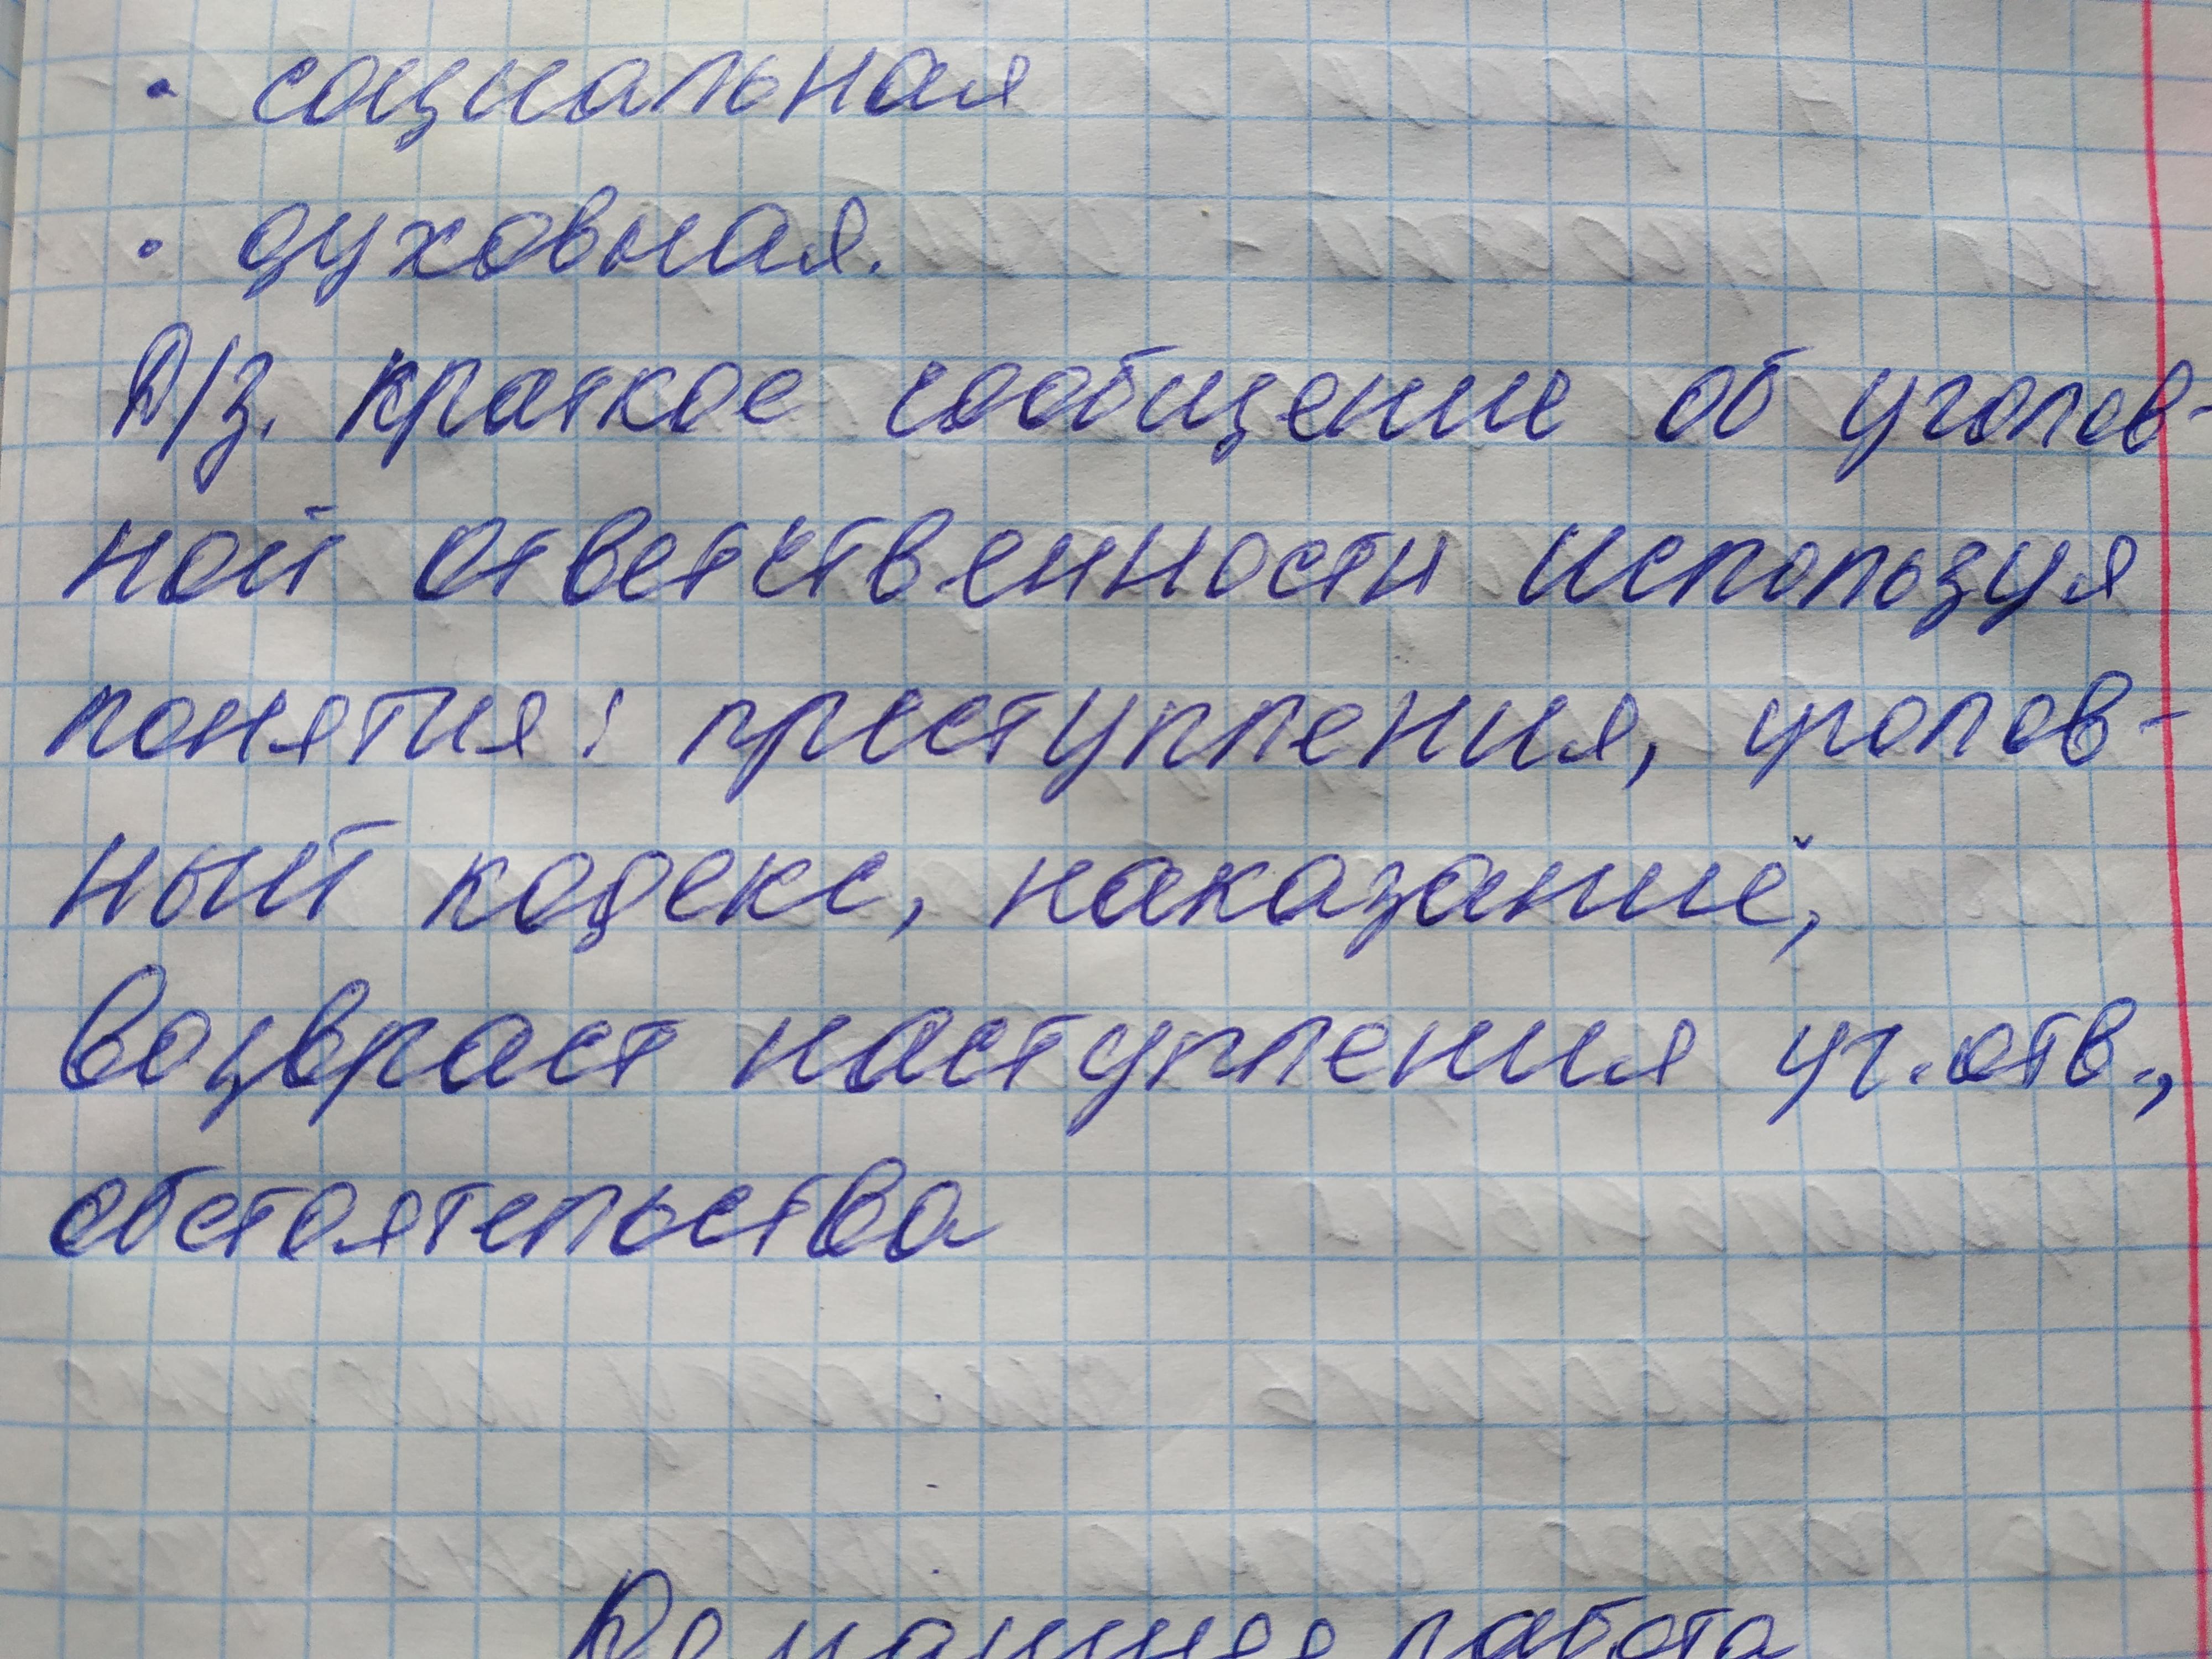 • социальная
• духовная.
Д/з. краткое сообщение об уголов-
ной ответственности используя
понятия: преступления, уголов-
ный кодекс, наказание,
возвраст наступления уг. отв.,
обстоятельства
Домашняя работа